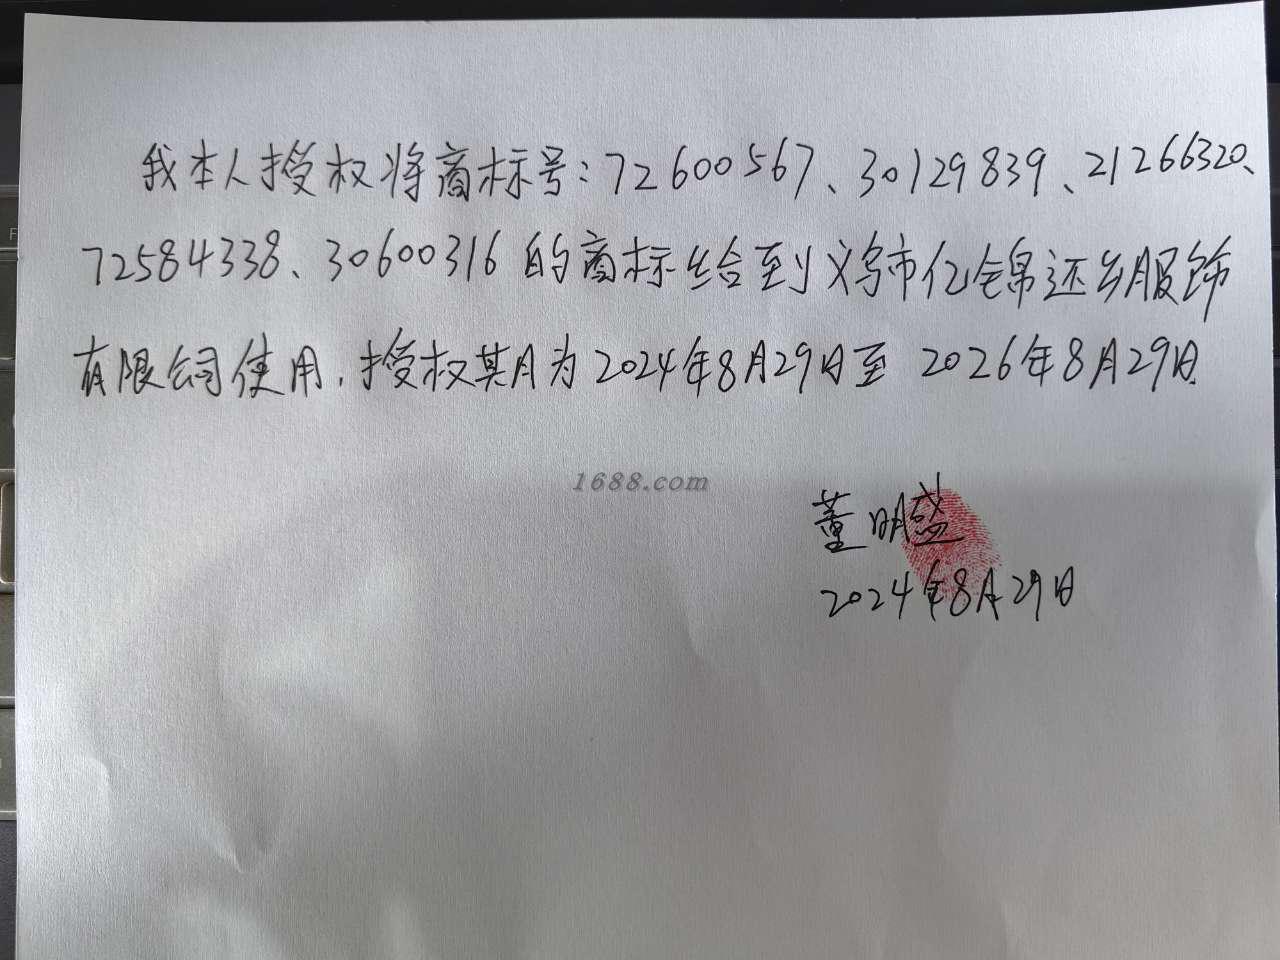 我本人授权将商标号:72600567、30129839、21266320、
72584338、30600316的商标给到义乌市亿锦还乡服饰
有限公司使用,授权其月为2024年8月29日至 2026年8月29日
1688.com
董明盛
2024年8月29日